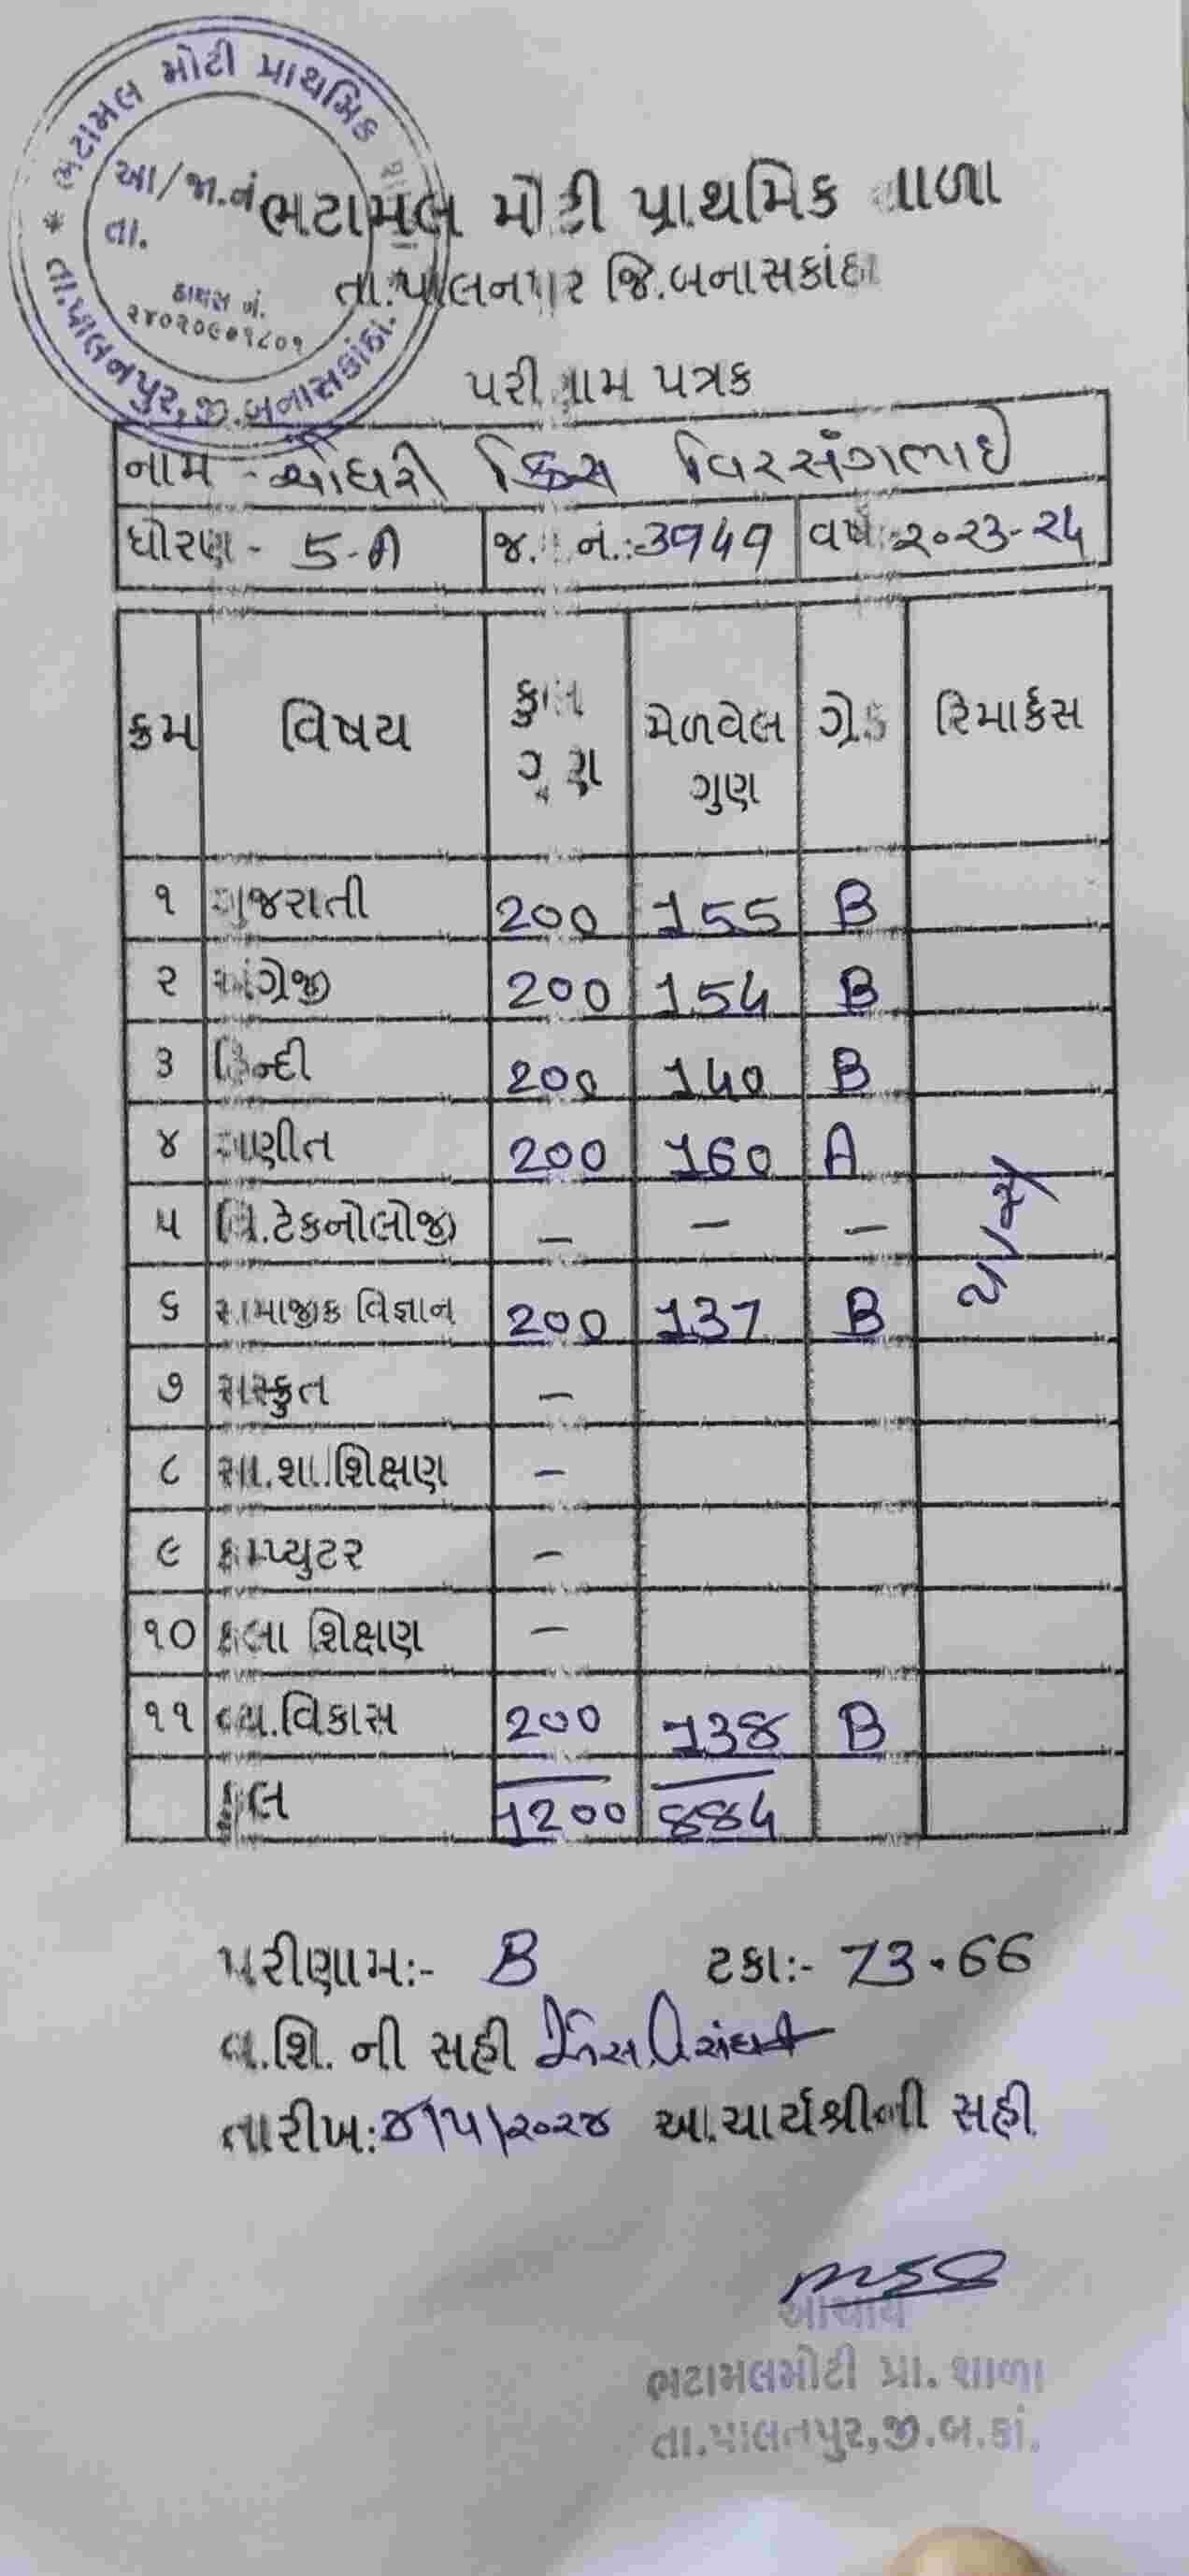 ભટામલ મોટી પ્રાથમિક
આ/જા.નં
તા.
ડાયસ નં.
તા.પાલનપુર,જી.બનાસકાંઠા.
ભટામલ મોટી પ્રાથમિક શાળા
તા.પાલનપુર જિ.બનાસકાંઠા
પરીણામ પત્રક
નામ - ચૌધરી ક્રિસ વિરસંગભાઈ
ધોરણ - 5-બ જ. નં.:- વર્ષ:-૨૦૨૩-૨૪
ક્રમ વિષય કુલ ગુણ મેળવેલ ગુણ ગ્રેડ રિમાર્કસ
૧ ગુજરાતી 200 155 B
૨ અંગ્રેજી 200 154 B
૩ હિન્દી 200 140 B
૪ ગણીત 200 160 A
૫ વિ.ટેકનોલોજી - - -
૬ સામાજીક વિજ્ઞાન 200 137 B
૭ સંસ્કૃત -
૮ સા.શા.શિક્ષણ -
૯ કમ્પ્યુટર -
૧૦ કલા શિક્ષણ -
૧૧ વ્ય.વિકાસ 200 138 B
કુલ 1200 884
પાસ
પરીણામ:- B ટકા:- 73.66
વ.શિ. ની સહી
તારીખ:૪/૫/૨૦૨૪ આ.ચાર્યશ્રીની સહી
આચાર્ય
ભટામલમોટી પ્રા. શાળા
તા.પાલનપુર,જી.બ.કાં.